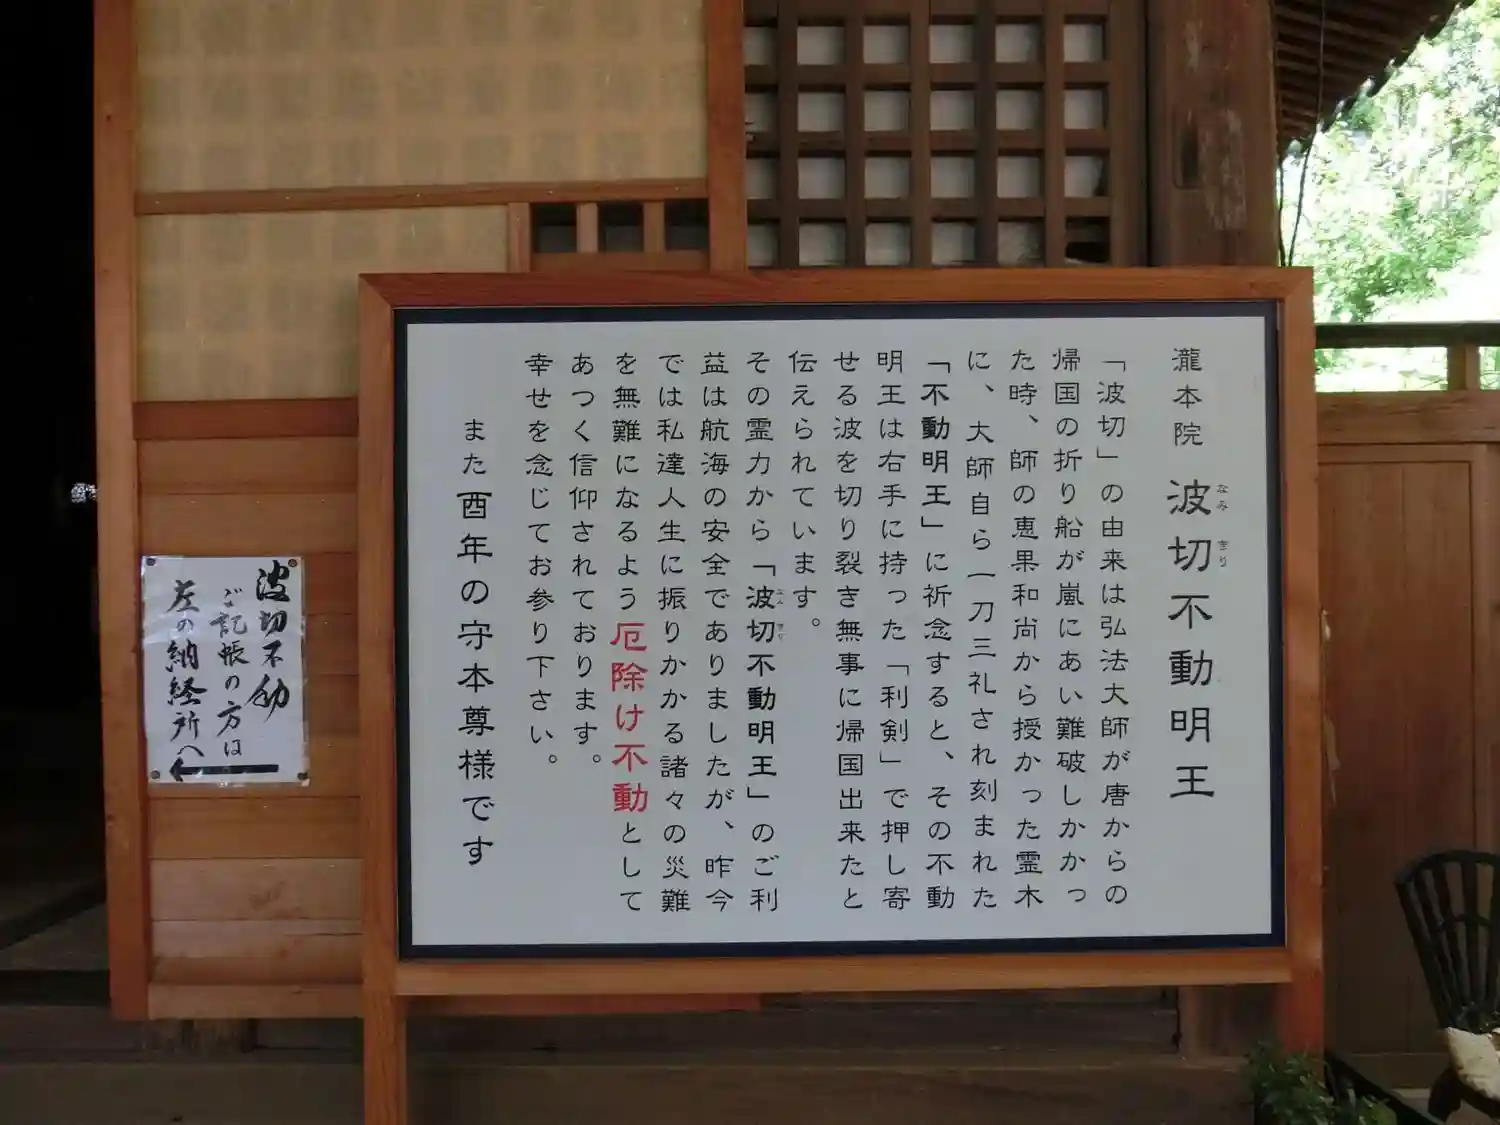 瀧本院 波切不動明王
なみ きり
「波切」の由来は弘法大師が唐からの
帰国の折り船が嵐にあい難破しかかっ
た時、師の恵果和尚から授かった霊木
に、大師自ら一刀三礼され刻まれた
「不動明王」に祈念すると、その不動
明王は右手に持った「利剣」で押し寄
せる波を切り裂き無事に帰国出来たと
伝えられています。
その霊力から「波切不動明王」のご利
益は航海の安全でありましたが、昨今
では私達人生に振りかかる諸々の災難
を無難になるよう厄除け不動として
あつく信仰されております。
幸せを念じてお参り下さい。
また酉年の守本尊様です
波切不動
ご記帳の方は
左の納経所へ